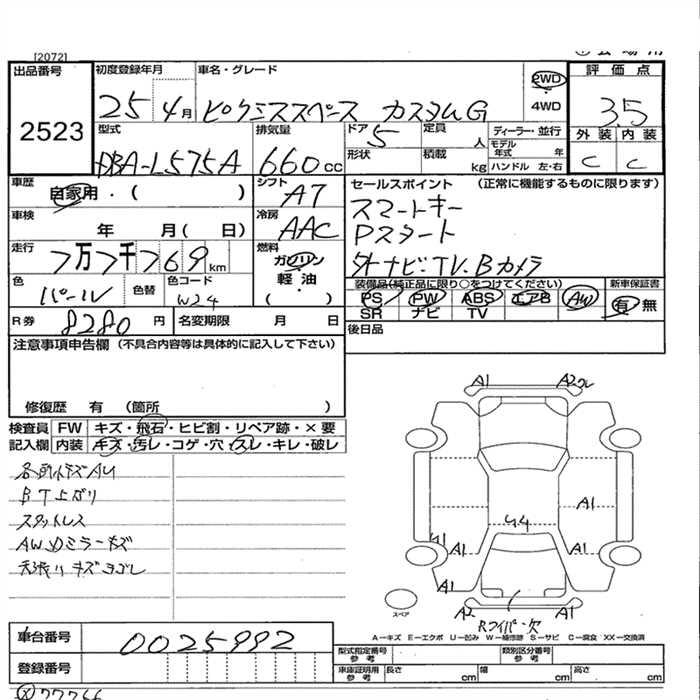 [2072]
出品番号
2523
初度登録年月
25 4月
車名・グレード
2WD
4WD
評価点
3.5
型式
DBA-L575A
排気量
660cc
ドア
5
形状
定員
人
積載
kg
ディーラー・並行
モデル年式 年
ハンドル 左・右
外装 内装
C C
車歴
自家用・( )
シフト
A7
車検
年 月( 日)
冷房
AAC
走行
7万7千769km
燃料
ガソリン
軽・油
( )
色
パール
色替
色コード
W24
セールスポイント (正常に機能するものに限ります)
スマートキー
Pスタート
外ナビ・TV.Bカメラ
装備品(純正品に限り○をつけてください)
PS PW ABS エアB AW
SR ナビ TV
新車保証書
有 無
R券
8280円
名変期限 月 日
後日品
注意事項申告欄 (不具合内容等は具体的に記入して下さい)
修復歴 有 (箇所 )
検査員記入欄
FW キズ・飛石・ヒビ割・リペア跡・×要
内装 キズ・汚レ・コゲ・穴・スレ・キレ・破レ
BT上がり
スタットレス
AWDミラーキズ
A1
A1
A1
A1
A1
A2
A1
Rワイパー欠
スペア
A―キズ E―エクボ U―凹み W―補修跡 S―サビ C―腐食 XX―交換済
車台番号
0025992
登録番号
型式指定番号 参考
類別区分番号 参考
車庫証明用 参考
長さ cm
幅 cm
高さ cm